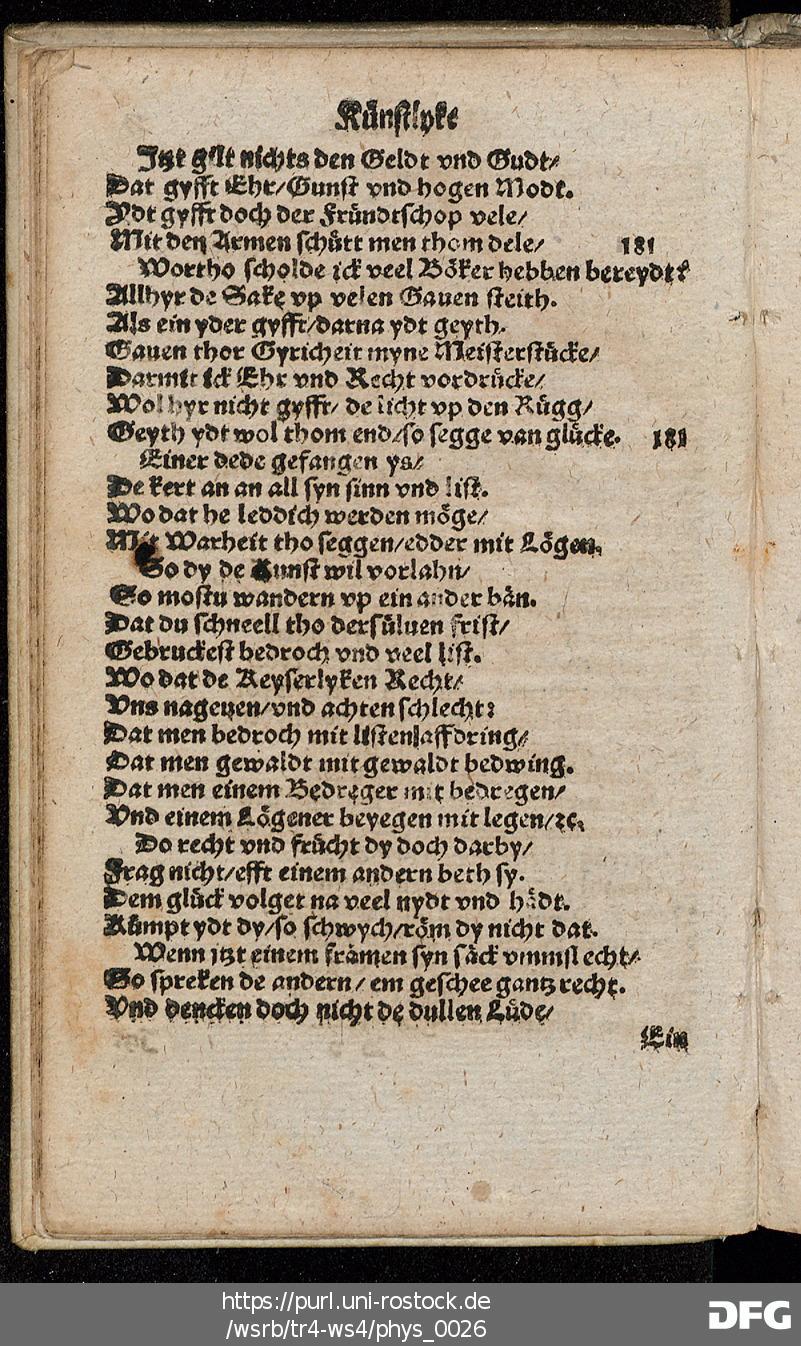 Künstlyke
Itzt gilt nichts den Geldt vnd Gudt/
Dat gyfft Ehr/Gunst vnd hogen Modt.
Ydt gyfft doch der Fründtschop vele/
Mit den Armen schütt men thom dele/ 181
Wortho scholde ick veel Böker hebben bereydt?
Allhyr de Sake vp velen Gauen steith.
Als ein yder gyfft/darna ydt geyth.
Gauen thor Gyricheit myne Meisterstücke/
Darmit ick Ehr vnd Recht vordrücke/
Wol hyr nicht gyfft/ de licht vp den Rügg/
Geyth ydt wol thom end/so segge van glücke. 181
Einer dede gefangen ys/
De kert an an all syn sinn vnd list.
Wo dat he leddich werden möge/
Mit Warheit tho seggen/edder mit Lögen.
So dy de Kunst wil vorlahn/
So mostu wandern vp ein ander bän.
Dat du schneell tho dersüluen frist/
Gebruckest bedroch vnd veel list.
Wo dat de Keyserlyken Recht/
Vns nageuen/vnd achten schlecht:
Dat men bedroch mit listen affdring/
Dat men gewaldt mit gewaldt bedwing.
Dat men einem Bedreger mit bedregen/
Vnd einem Lögener beyegen mit legen/ꝛc.
Do recht vnd frücht dy doch darby/
Frag nicht/efft einem andern beth sy.
Dem glück volget na veel nydt vnd hädt.
Kümpt ydt dy/so schwych/röm dy nicht dat.
Wenn itzt einem främen syn säck vmmslecht/
So spreken de andern/ em geschee gantz recht.
Vnd dencken doch nicht de dullen Lüde/
Ein
https://purl.uni-rostock.de
/wsrb/tr4-ws4/phys_0026
DFG